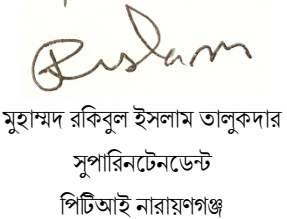 মুহাম্মদ রকিবুল ইসলাম তালুকদার
সুপারিনটেনডেন্ট
পিটিআই নারায়ণগঞ্জ